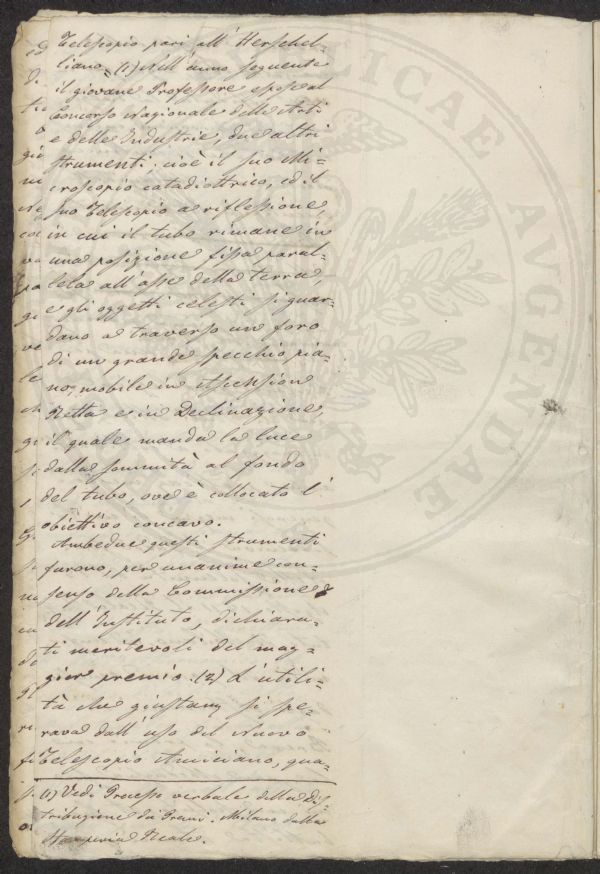 Telescopio pari all'Herschel-
liano. (1) Nell'anno seguente
il giovane Professore espose al
Concorso Nazionale delle Arti
e delle Industrie, due altri
strumenti, cioè il suo Mi=
croscopio catadiottrico, ed il
suo Telescopio a riflessione,
in cui il tubo rimane in
una posizione fissa, paral=
lela all'asse della terra,
e gli oggetti celesti si guar=
dano a traverso un foro
di un grande specchio pia=
no, mobile in Ascension
Retta e in Declinazione,
il quale manda la luce
dalla sommità al fondo
del tubo, ove è collocato l'
obiettivo concavo.
Ambedue questi strumenti
furono, per unanime con=
senso della Commissione
dell'Instituto, dichiara=
ti meritevoli del mag=
gior premio. (2) L'utili=
tà che giustam. si spe=
rava dall'uso del Nuovo
Telescopio Amiciano, qua=
(1) Vedi Processo verbale della Dis=
tribuzione dei Premi. Milano dalla
Stamperia Reale.
REIPUBLICAE AUGENDAE